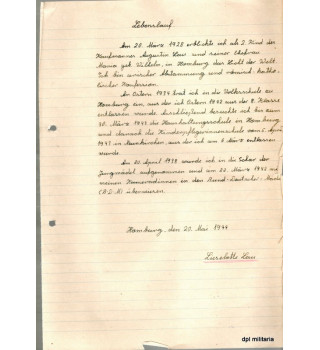 Lebenslauf.
Am 20. März 1928 erblickte ich als 2. Kind des
Kaufmannes Augustin Lau und seiner Ehefrau
Maria geb. in Homburg das Licht der Welt.
Ich bin arischer Abstammung und römisch-katho-
lischer Konfession.
An Ostern 1934 trat ich in die Volksschule zu
Homburg ein, aus der ich Ostern 1942 aus der 8. Klasse
entlassen wurde. besuchte ich bis zum
30. März 1943 die Haushaltungsschule in Homburg
und danach die Kinderpflegerinnenschule vom 5. April
1943 in Neunkirchen aus der ich am entlassen
wurde.
Am 20. April 1938 wurde ich in die Schar der
Jungmädel aufgenommen und am 20. März 1942 mit
meinen Kameradinnen in den Bund-Deutscher-Mädel
(B.D.M) überwiesen.
Homburg, den 20. Mai 1944
Lau
dpl militaria